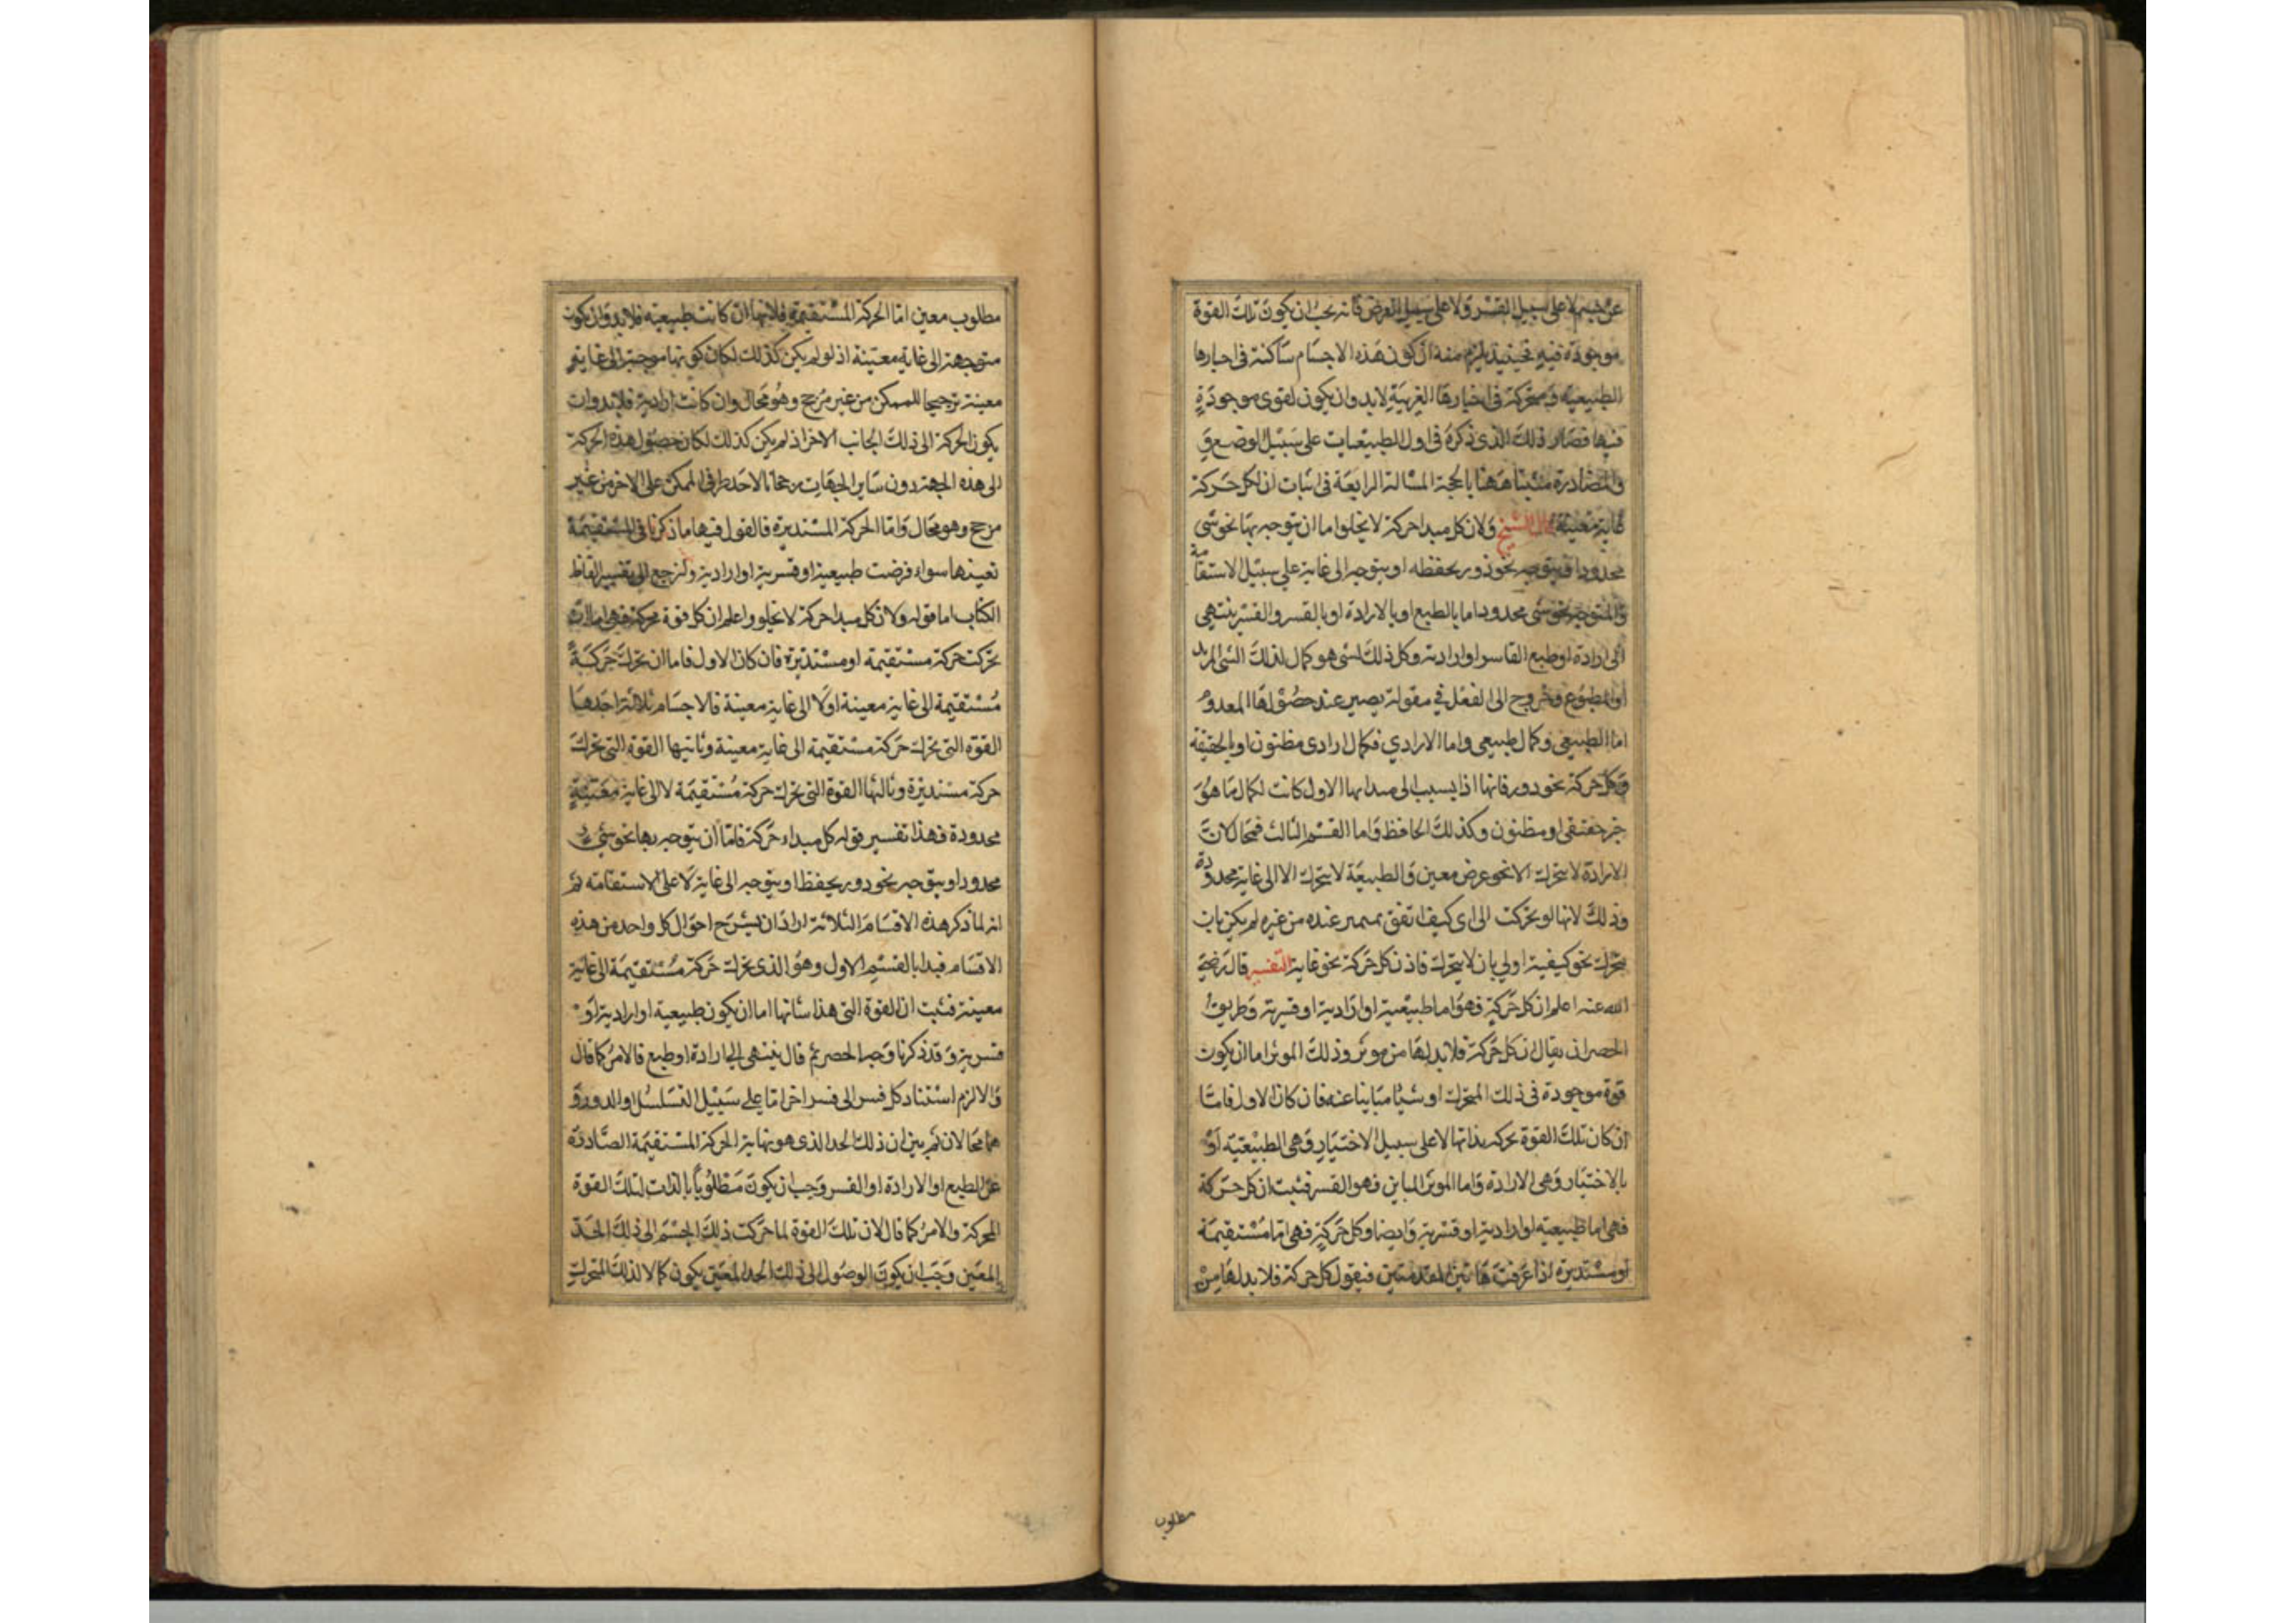 عن جسم لا على سبيل القسر ولا على سبيل العرض فانه يجب ان يكون تلك القوة
موجودة فيه فحينئذ يلزم منه ان كون هذه الاجسام ساكنة فى احيازها
الطبيعية ومتحركة فى احيازها الغريبة لابد وان يكون لقوى موجودة
فيها فصار ذلك الذى ذكره فى اول الطبيعيات على سبيل الوضع و
والمصادرة مثبتا ههنا بالحجة المسالة الرابعة فى اثبات ان لكل حركة
غاية معينة قال الشيخ ولان كل مبدا حركة لا يخلوا ما ان يتوجه بها نحو شى
محدود او يتوجه نحو دور يحفظه او يتوجه الى غاية على سبيل الاستقامة
والمتوجه نحو شى محدود اما بالطبع او بالارادة او بالقسر والقسر ينتهى
الى ارادة او طبع القاسر او ارادته وكل ذلك لشى هو كمال لذلك الشى المريد
او المطبوع وخروج الى الفعل في مقولة يصير عند حصولها المعدوم
اما الطبيعى وكمال طبيعى واما الارادي فكمال ارادى مظنون او بالحقيقة
وكل حركة نحو دور فانها اذا يسبب الى مبدايها الاول كانت لكمال ما هو
خير حقيقى او مظنون وكذلك الحافظ واما القسم الثالث فمحال لان
الارادة لا تتحرك الا نحو عرض معين والطبيعة لا يتحرك الا الى غاية محدودة
وذلك لانها لو تحركت الى اى كيف اتفق بميز عنده من غيره لم يكن بان
يتحرك نحو كيفية اولي بان لا يتحرك فاذن كل حركة نحو غاية التفسير قال رضي
الله عنه اعلم ان كل حركة فهو اما طبيعية او ارادية او قسرية وطريق
الحصر ان يقال ان كل حركة فلا بد لها من موثر وذلك الموثر اما ان يكون
قوة موجودة فى ذلك المتحرك او شيئا مباينا عنه فان كان الاول فاما
ان كان تلك القوة تحركه بذاتها لا على سبيل الاختيار وهى الطبيعية او
بالاختيار وهى الارادة واما الموثر المباين فهو القسر فثبت ان كل حركة
فهى اما طبيعية او ارادية او قسرية وايضا وكل حركة فهى اما مستقيمة
او مستديرة اذا عرفت هاتين المقدمتين فيقول كل حركة فلا بد لها من
مطلوب
مطلوب معين اما الحركة المستقيمة فلانها ان كانت طبيعية فلابد وان يكون
متوجهة الى غاية معينة اذ لو لم يكن كذلك لكان كونها موجبة الى غاية
معينة ترجيحا للممكن من غير مرجح وهو محال وان كانت ارادية فلابد وان
يكون الحركة الى ذلك الجانب الاخر اذ لم يكن كذلك لكان حصول هذه الحركة
الى هذه الجهة دون ساير الجهات رجحانا لاحد طرفى الممكن على الاخر من غير
مرجح وهو محال واما الحركة المستديرة فالقول فيها ما ذكرنا فى المستقيمة
تعينها سواء فرضت طبيعية او قسرية او ارادية ولنرجع الى تفسير الفاظ
الكتاب اما قوله ولان كل مبدا حركة لا يخلو واعلم ان كل قوة محركة فهى اما ان
تحركت حركة مستقيمة او مستديرة فان كان الاول فاما ان تحرك حركة
مستقيمة الى غاية معينة او لا الى غاية معينة فالاجسام ثلاثة احدها
القوة التى تحرك حركة مستقيمة الى غاية معينة وثانيها القوة التى تحرك
حركة مستديرة وثالثها القوة التى تحرك حركة مستقيمة لا الى غاية معينة
محدودة فهذا تفسير قوله كل مبداء حركة فاما ان يتوجه بها نحو شئ
محدود او يتوجه نحو دور يحفظ او يتوجه الى غاية لا على الاستقامة ثم
انه لما ذكر هذه الاقسام الثلاثة اراد ان يشرح احوال كل واحد من هذه
الاقسام فبدا بالقسم الاول وهو الذى تحرك حركة مستقيمة الى غاية
معينة فثبت ان القوة التى هذا شانها اما ان يكون طبيعية او ارادية او
قسرية وقد ذكرنا وجه الحصر ثم قال ينتهى الى ارادة او طبع فالامر كما قال
والا لزم استناد كل قسر الى قسر اخر اما على سبيل التسلسل او الدور و
هما محالان ثم بين ان ذلك الحد الذى هو نهاية الحركة المستقيمة الصادرة
عن الطبع او الارادة او القسر وجب ان يكون مطلوبا بالذات لتلك القوة
المحركة والامر كما قال لان تلك القوة لما حركت ذلك الجسم الى ذلك الحد
المعين وجب ان يكون الوصول الى ذلك الحد المعين يكون كمالا لذلك المتحرك